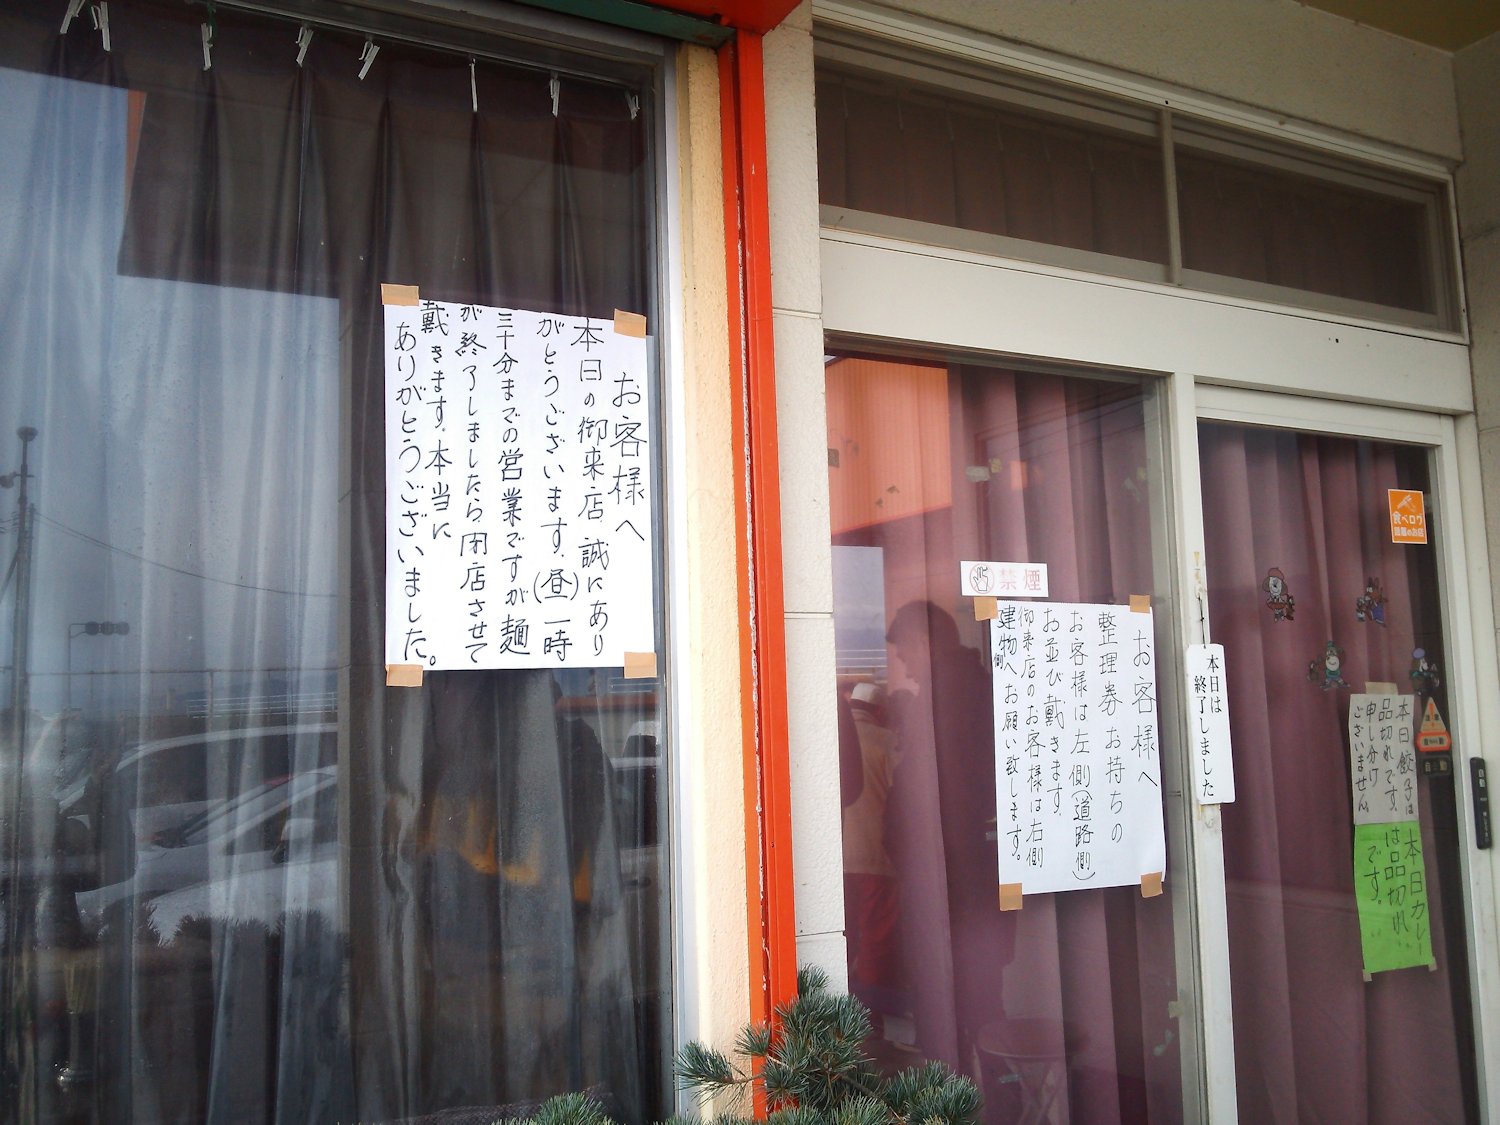 お客様へ
本日の御来店、誠にあり
がとうございます。(昼)一時
三十分までの営業ですが麺
が終了しましたら、閉店させて
戴きます。本当に
ありがとうございました。
禁煙
お客様へ
整理券お持ちの
お客様は左側(道路側)
お並び戴きます。
御来店のお客様は右側
建物側へお願い致します。
本日は
終了しました
食べログ
本日餃子は
品切れです。
申し分け
ございません
本日カレー
は品切れ
です。
自動